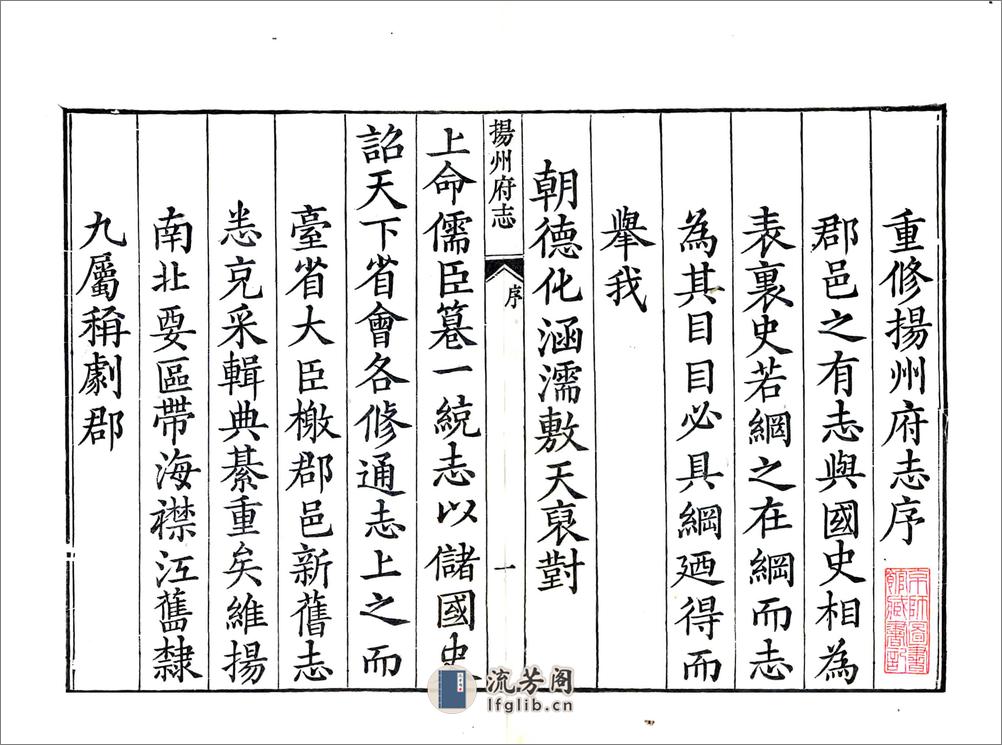 重修揚州府志序
郡邑之有志與國史相為
表裏史若綱之在綱而志
為其目目必具綱廼得而
舉我
朝德化涵濡敷天裒對
揚州府志
序
一
上命儒臣纂一統志以儲國史
詔天下省會各修通志上之而
臺省大臣檄郡邑新舊志
悉克采輯典綦重矣維揚
南北要區帶海襟江舊隸
九屬稱劇郡
京師圖書
館藏書記
流芳阁
lfglib.cn